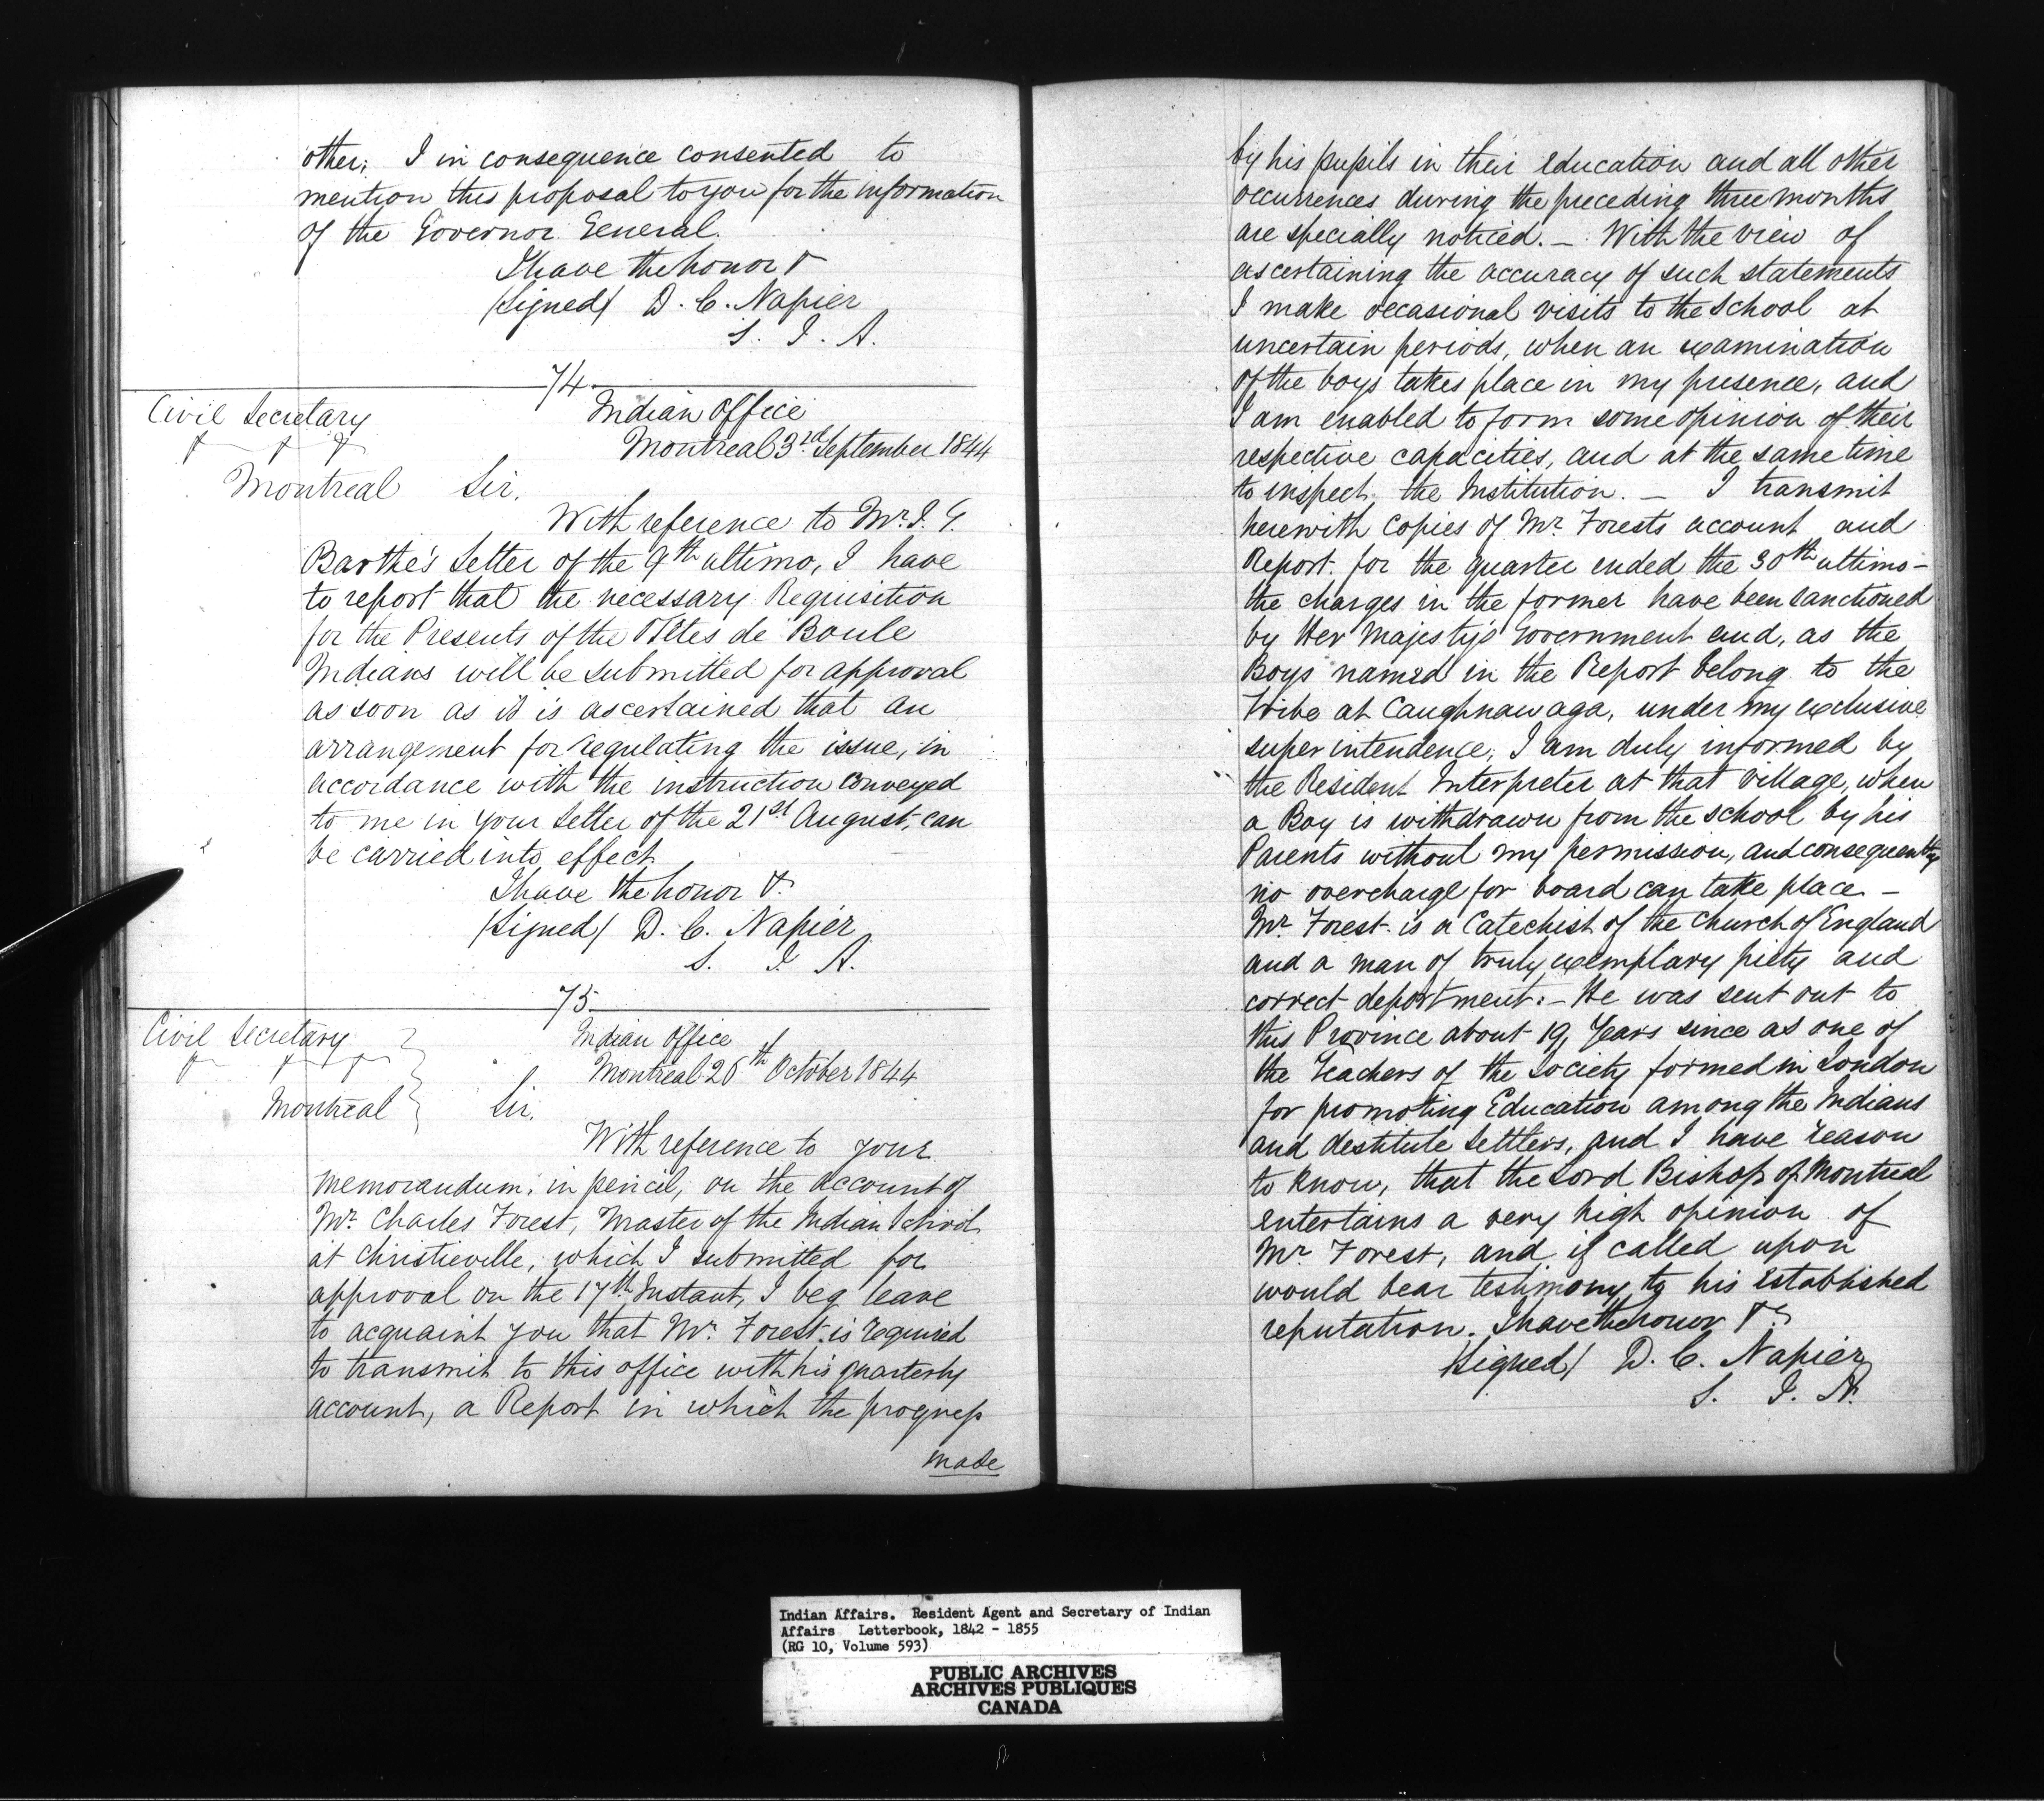 other; I in consequence consented to
mention this proposal to you for the information
of the Governor General.
I have the honor &
(Signed) D. C. Napier
S. I. A.
74
Civil Secretary
& & &
Montreal
Indian Office
Montreal 3rd September 1844
Sir,
With reference to Mr. J. G.
Barthe's Letter of the 9th ultimo, I have
to report that the necessary Requisition
for the Presents of the Têtes de Boule
Indians will be submitted for approval
as soon as it is ascertained that an
arrangement for regulating the issue, in
accordance with the instruction conveyed
to me in your Letter of the 21st August, can
be carried into effect
I have the honor &.
(Signed) D. C. Napier
S. I. A.
75
Civil Secretary
& & &
Montreal
Indian Office
Montreal 26th October 1844
Sir,
With reference to your
memorandum, in pencil, on the account of
Mr. Charles Forest, Master of the Indian School
at Christieville, which I submitted for
approval on the 17th Instant, I beg leave
to acquaint you that Mr. Forest is required
to transmit to this office with his quarterly
account, a Report in which the progress
made
by his pupils in their education and all other
occurrences during the preceding three months
are specially noticed. — With the view of
ascertaining the accuracy of such statements
I make occasional visits to the School at
uncertain periods, when an examination
of the boys takes place in my presence, and
I am enabled to form some opinion of their
respective capacities, and at the same time
to inspect the Institution. — I transmit
herewith copies of Mr. Forest's account and
Report for the quarter ended the 30th ultimo —
the charges in the former have been sanctioned
by Her Majesty's Government and, as the
Boys named in the Report belong to the
Tribe at Caughnawaga, under my exclusive
superintendence, I am duly informed by
the Resident Interpreter at that Village, when
a Boy is withdrawn from the school by his
Parents without my permission, and consequently
no overcharge for board can take place —
Mr. Forest is a Catechist of the Church of England
and a man of truly exemplary piety and
correct deportment. — He was sent out to
this Province about 19 Years since as one of
the Teachers of the Society formed in London
for promoting Education among the Indians
and destitute Settlers, and I have reason
to know, that the Lord Bishop of Montreal
entertains a very high opinion of
Mr. Forest, and if called upon
would bear testimony to his established
reputation. I have the honor &c
(Signed) D. C. Napier
S. I. A.
Indian Affairs. Resident Agent and Secretary of Indian
Affairs Letterbook, 1842 - 1855
(RG 10, Volume 593)
PUBLIC ARCHIVES
ARCHIVES PUBLIQUES
CANADA